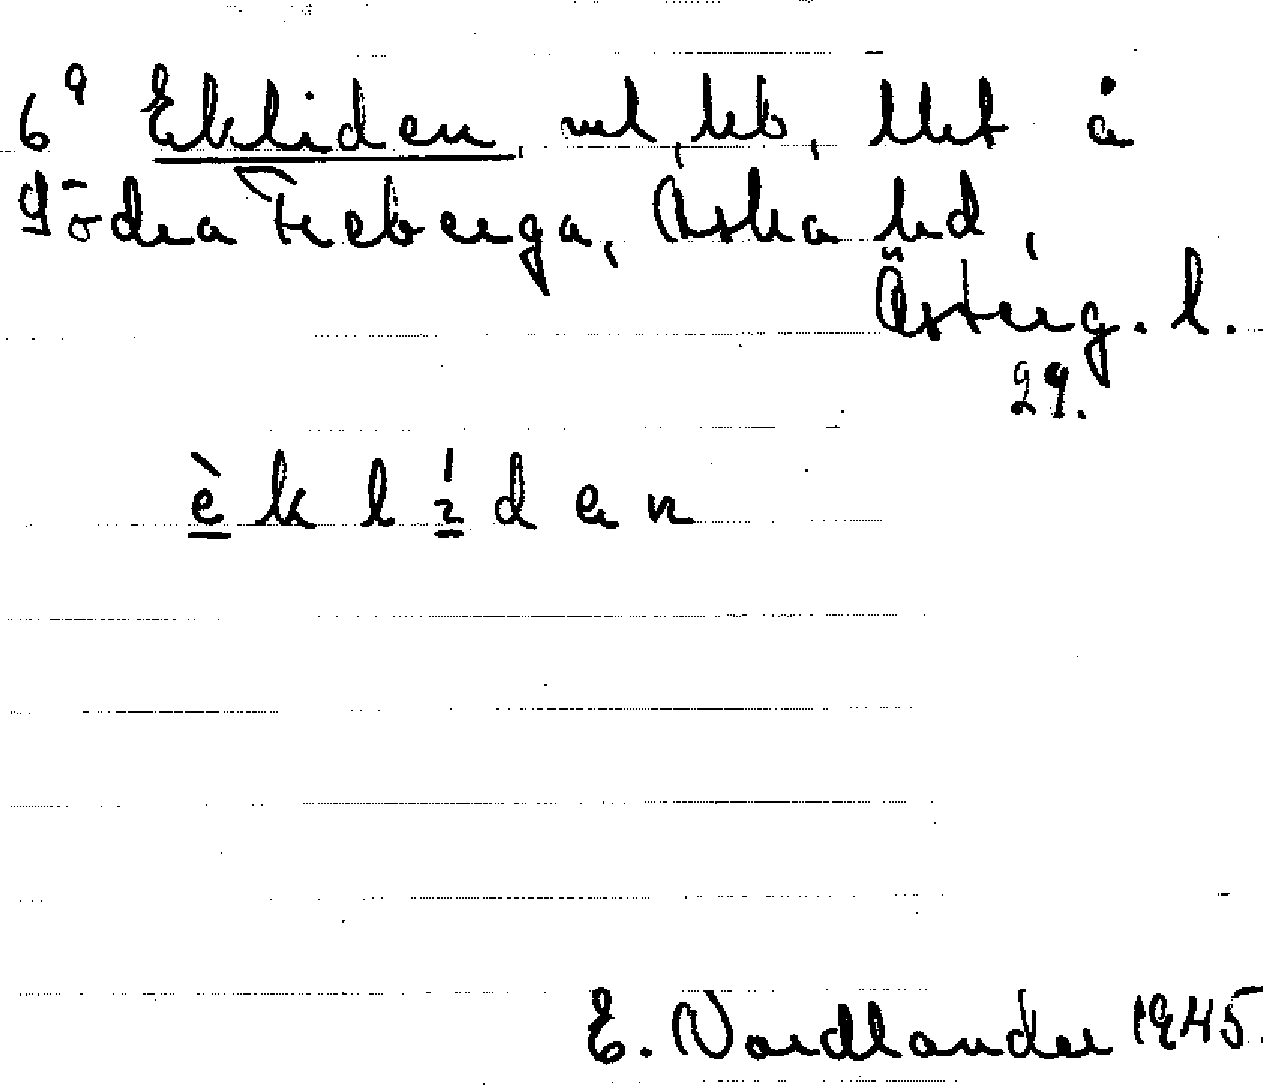 6⁹ Ekliden, lht å
Södra Freberga, Aska hd,
Österg. l.
29.
è k l í d e n
E. Nordlander 1945.